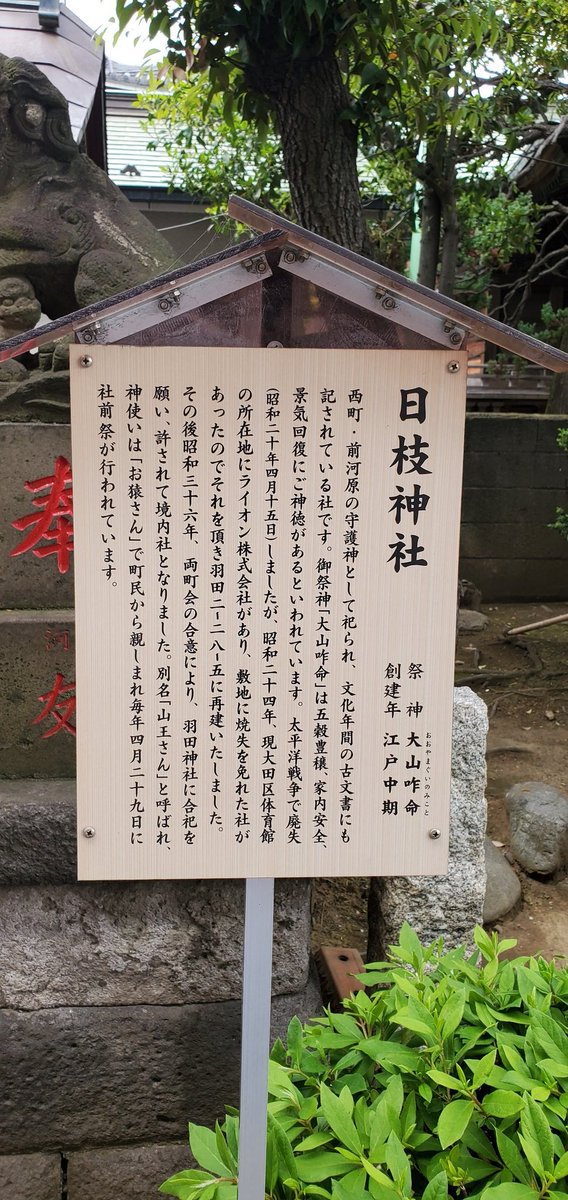 日枝神社
祭神 大山咋命
おおやまぐいのみこと
創建年 江戸中期
西町・前河原の守護神として祀られ、文化年間の古文書にも
記されている社です。御祭神「大山咋命」は五穀豊穣、家内安全、
景気回復にご神徳があるといわれています。太平洋戦争で廃失
(昭和二十年四月十五日)しましたが、昭和二十四年、現大田区体育館
の所在地にライオン株式会社があり、敷地に焼失を免れた社が
あったのでそれを頂き羽田二−二八−五に再建いたしました。
その後昭和三十六年、両町会の合意により、羽田神社に合祀を
願い、許されて境内社となりました。別名「山王さん」と呼ばれ、
神使いは「お猿さん」で町民から親しまれ毎年四月二十九日に
社前祭が行われています。
奉
河
友